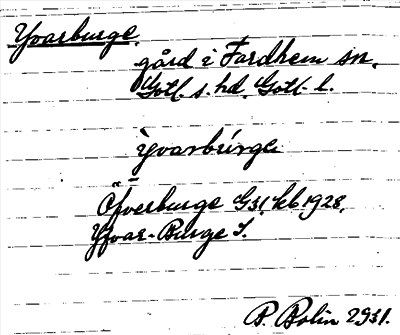 Yvarburge.
gård i Fardhem sn.
Gotl. s. hd. Gotl. l.
Yvarburge
Öfverburge G 31, 1928.
Yfvar-Burge J.
P. Bolin 1931.